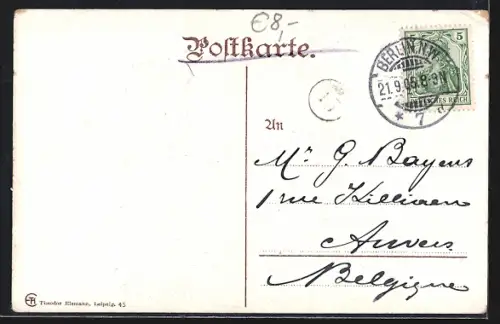 €8,-
Postkarte.
5
BERLIN N.W.
21.9.05.8-9N
* 7 d
DEUTSCHES REICH
An
Mr G. Bayens
1 rue Killiaen
Anvers
Belgique
Theodor Eismann, Leipzig. 45